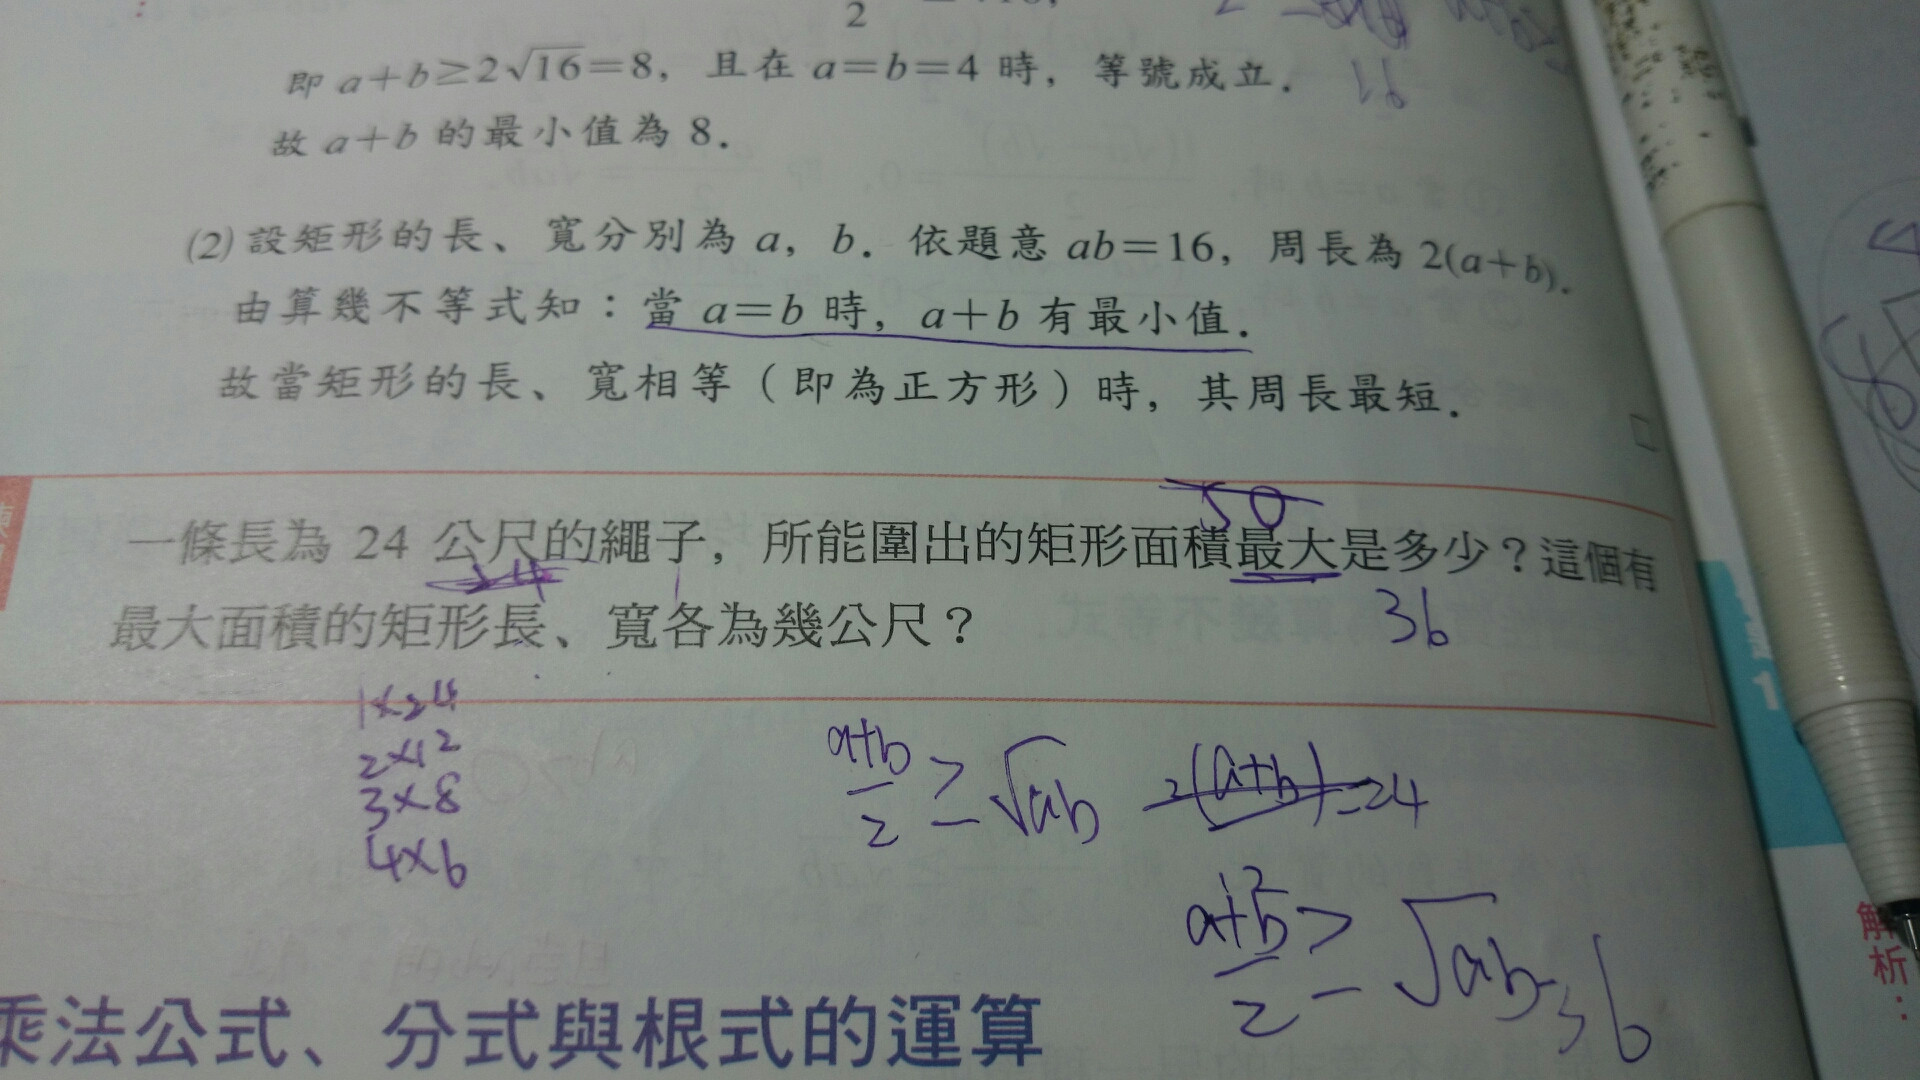 2
即 a+b≥2√16=8, 且在 a=b=4 時, 等號成立.
16
故 a+b 的最小值為 8.
(2) 設矩形的長、寬分別為 a, b. 依題意 ab=16, 周長為 2(a+b).
由算幾不等式知：當 a=b 時, a+b 有最小值.
故當矩形的長、寬相等（即為正方形）時, 其周長最短.
50
一條長為 24 公尺的繩子, 所能圍出的矩形面積最大是多少？這個有
24
最大面積的矩形長、寬各為幾公尺？
36
1×24
2×12
3×8
4×6
a+b/2 ≥ √ab
2(a+b)=24
12
a+b/2 ≥ √ab
36
1
解析：
乘法公式、分式與根式的運算